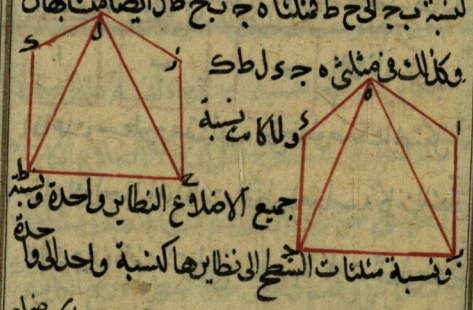 كنسبة ب ج الى ح ط فمثلثا ه ج ب ح ط ل ايضا متشابهان
وكذلك فى مثلثى ه ج ء ل ط ك
ولما كانت نسبة
جميع الاضلاع النظاير واحدة ونسبة
ونسبة مثلثات السطح الى نظايرها كنسبة واحد الى واحدة
ك
ل
ز
ط
ح
ء
ه
ا
ج
ب